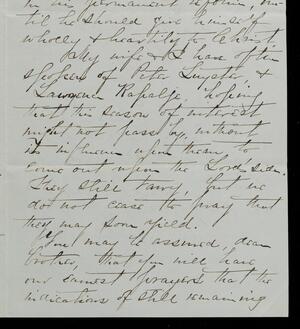 in his permanent reform, un-
til he should give himself
wholly & heartily to Christ.
My wife & I have often
spoken of Peter Luyster, &
Lawrence hoping
that this season of interest
might not pass by, without
its influence upon them to
come out upon the Lord's side.
They still tarry, but we
do not cease to pray that
they may soon yield.
You may be assured, dear
brother, that you will have
our earnest prayers that the
indications of still remaining